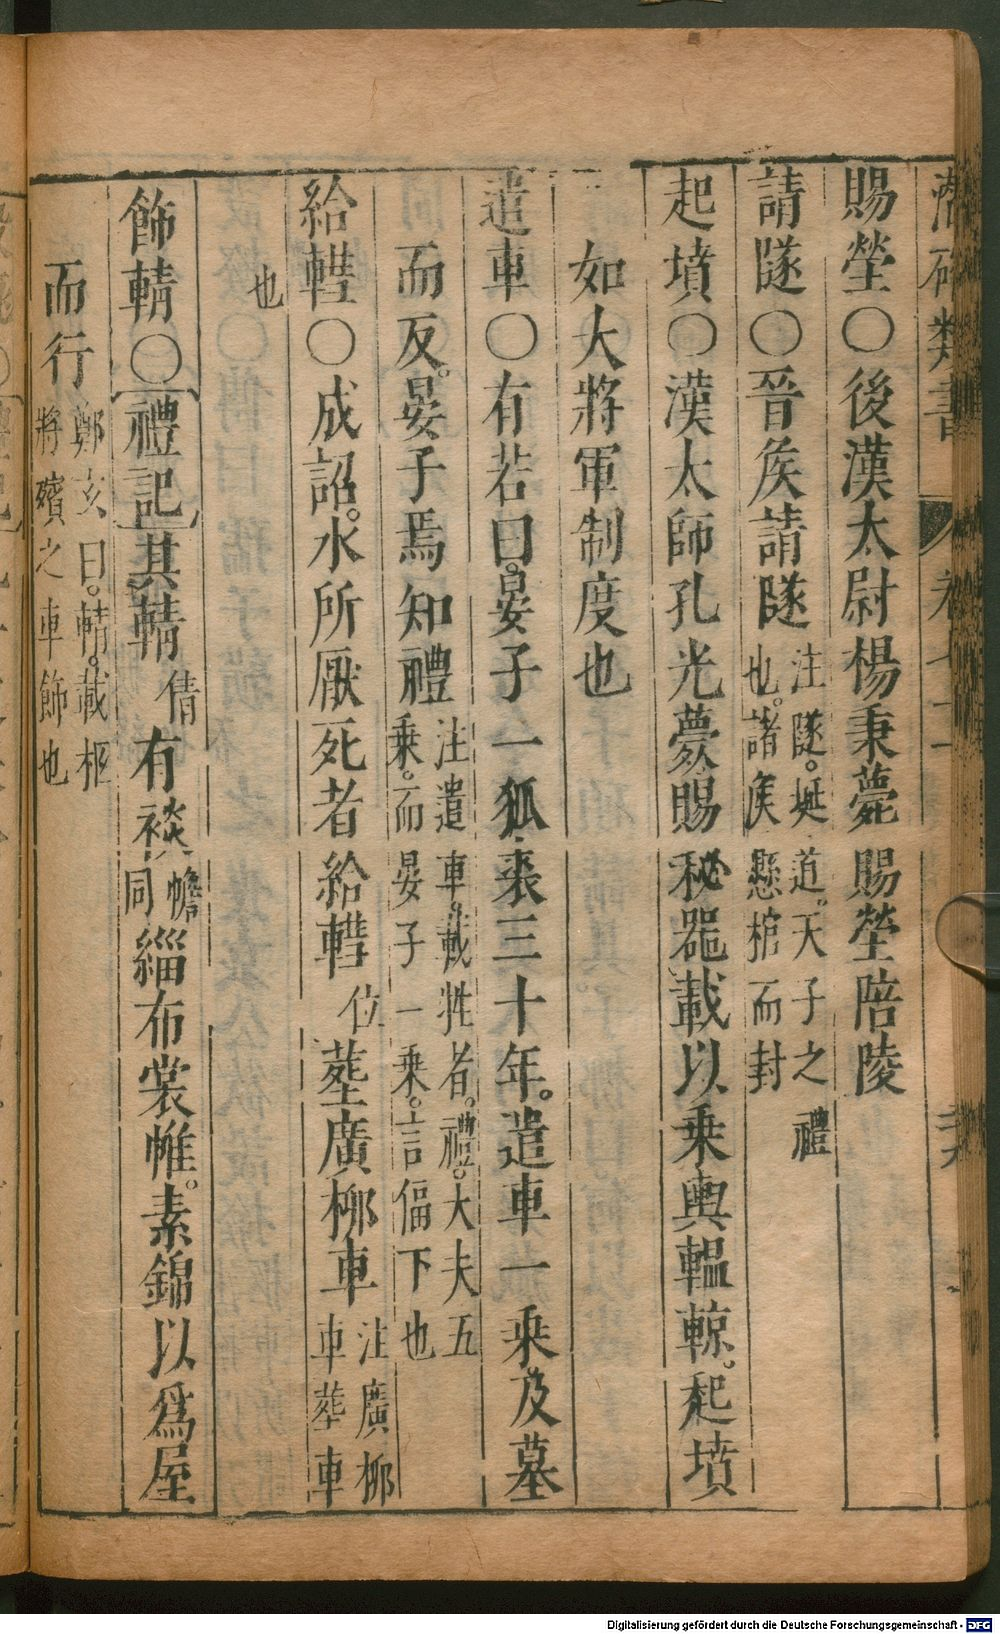 潛確類書 卷七十
賜塋○後漢太尉楊秉薨賜塋陪陵
請隧○晉侯請隧注隧。埏道。天子之禮也。諸侯懸棺而封
起墳○漢太師孔光薨賜秘器載以乘輿轀輬。起墳
如大將軍制度也
遣車○有若曰。晏子一狐裘三十年。遣車一乘。及墓
而反。晏子焉知禮注遣車。載牲者。禮。大夫五乘。而晏子一乘。言偪下也
給轊○成詔。水所厭死者給轊位塟廣柳車注廣柳車塟車
也
飾輤○禮記其輤倩有裧幨同緇布裳帷。素錦以爲屋
而行鄭玄曰。輤。載柩將殯之車飾也
Digitalisierung gefördert durch die Deutsche Forschungsgemeinschaft - DFG